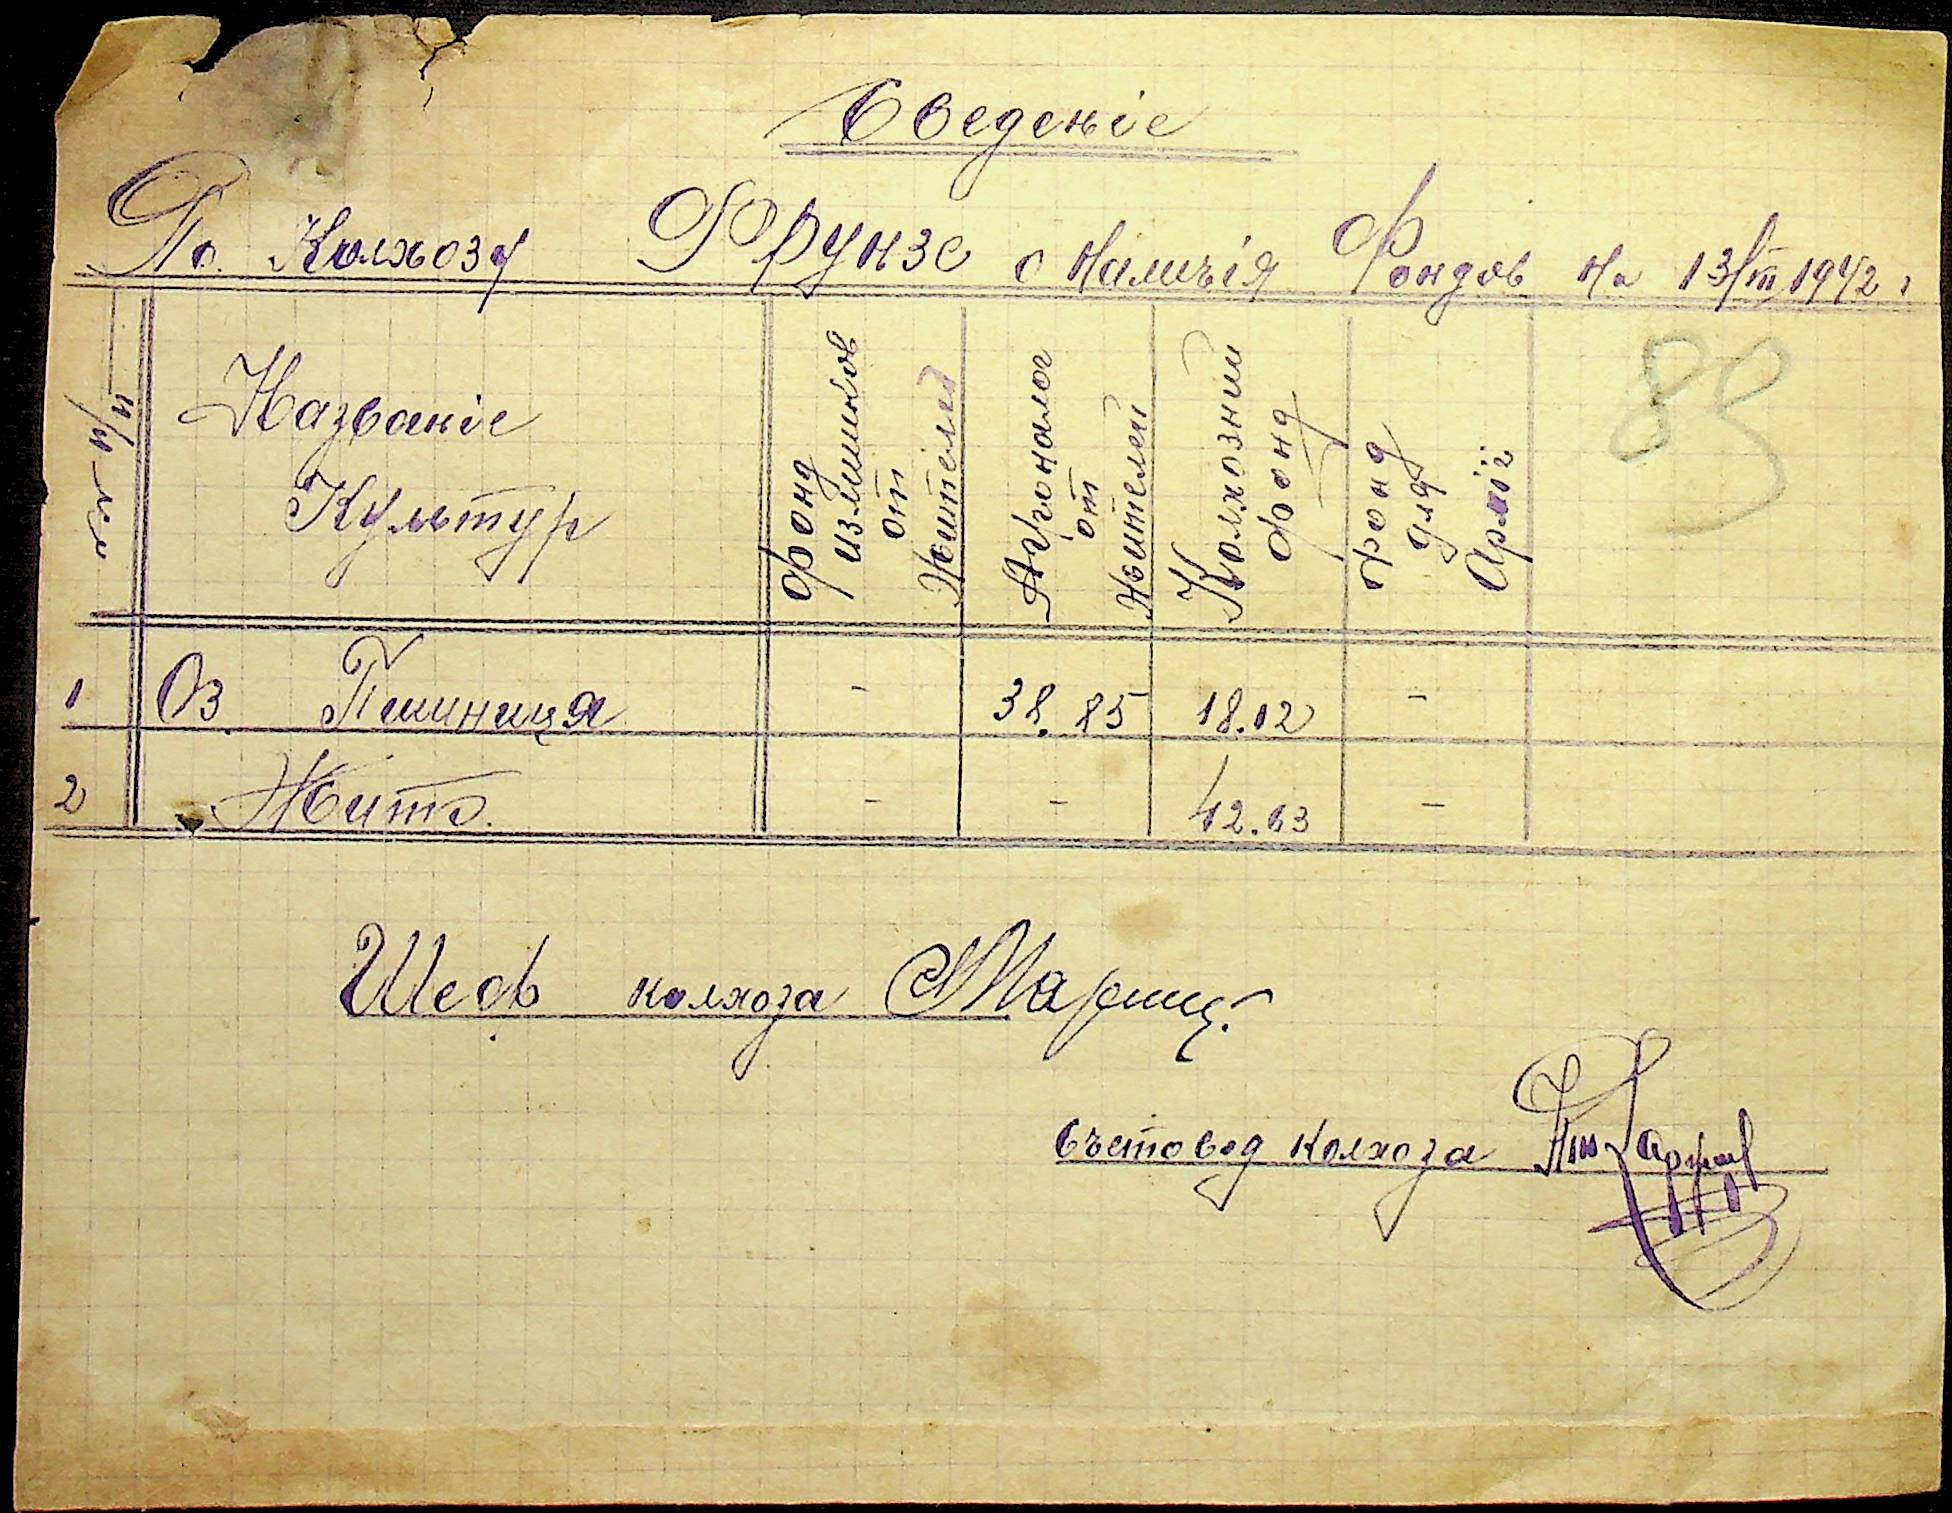 Сведеніе
По Колхозу Фрунзе о Наличія Фондов на 13/III 1942 г
№№ п/п
Названіе
Культур
Фонд
излишков
от
жителей
Агроналог
от
жителей
Колхозний
фонд
фонд
для
Армії
89
1 Оз Пшиниця - 38.85 18.12 -
2 Жито. - - 42.63 -
Шеф колхоза
Счетовод колхоза